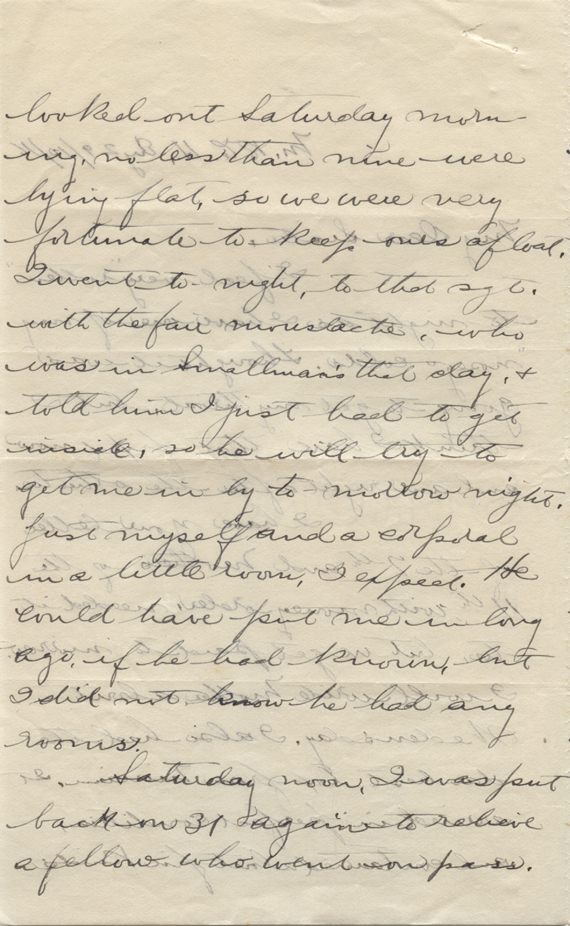 looked out Saturday morn-
ing, no less than nine were
lying flat, so we were very
fortunate to keep ours afloat.
I went to-night, to that sgt.
with the fair moustache, who
was in Smallman's that day, &
told him I just had to get
inside, so he will try to
get me in by to morrow night.
Just myself and a corporal
in a little room, I expect. He
could have put me in long
ago, if he had known, but
I did not know he had any
rooms.
Saturday noon, I was put
back on 31 again to relieve
a fellow who went on pass.